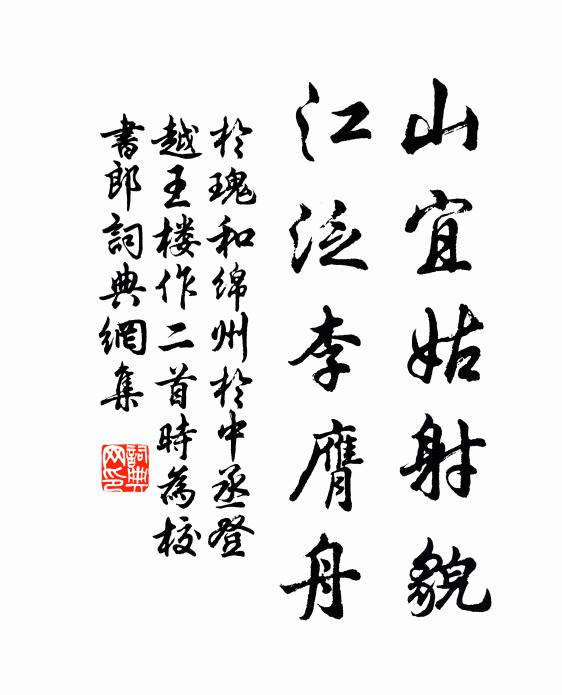 山宜姑射貌
江泛李膺舟
於瑰和绵州於中丞登
越王楼作二首時為校
書郎詞典網集
詞典
网印